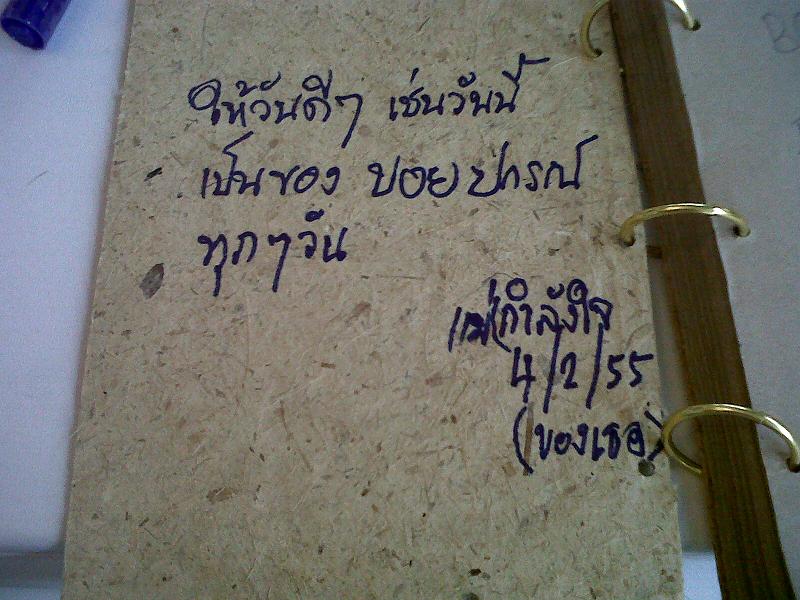 ให้วันดีๆ เช่นวันนี้
เป็นของ ปอย ปกรณ์
ทุกๆวัน
แม่กำลังใจ
4/2/55
(ของเธอ)